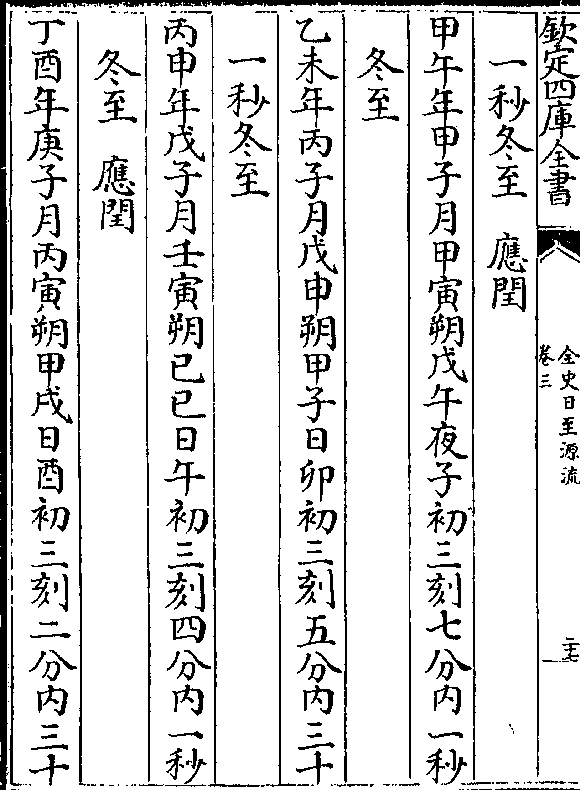 欽定四庫全書
全史日至源流
卷三
二十七
一秒冬至　應閏
甲午年甲子月甲寅朔戊午夜子初三刻七分内一秒
冬至
乙未年丙子月戊申朔甲子日卯初三刻五分内三十
一秒冬至
丙申年戊子月壬寅朔己巳日午初三刻四分内一秒
冬至　應閏
丁酉年庚子月丙寅朔甲戌日酉初三刻二分内三十